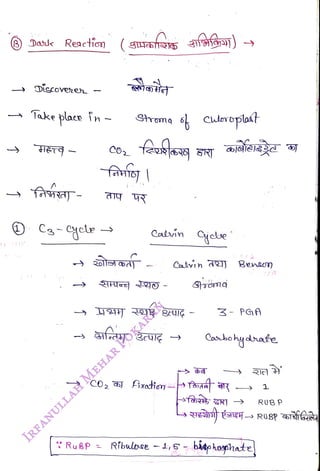 Ⓑ Dark Reaction ( अप्रकाशिक अभिक्रिया ) →
→ Discoverer - ब्लैकमैन
→ Take place in - Stroma of Chloroplast
→ महत्व - CO₂ स्थिरीकरण द्वारा कार्बोहाइड्रेट का
निर्माण |
→ निर्भरता - ताप पर
① C₃ - Cycle → Calvin Cycle
→ खोजकर्ता - Calvin तथा Benson
→ सम्पन्न स्थल - Stroma
→ प्रथम स्थाई उत्पाद - 3 - PGA
→ अन्तिम उत्पाद → Carbohydrate
→ कब → रात में
→ CO₂ का Fixation - → कितनी बार → 1
→ किसके द्वारा → RUBP
→ सहयोगी एंजाइम → RUBP कार्बोक्सिलेज
∵ RuBP = Ribulose - 1, 5 - bisphosphate
IRFANULLAH MEHAR POKARAN